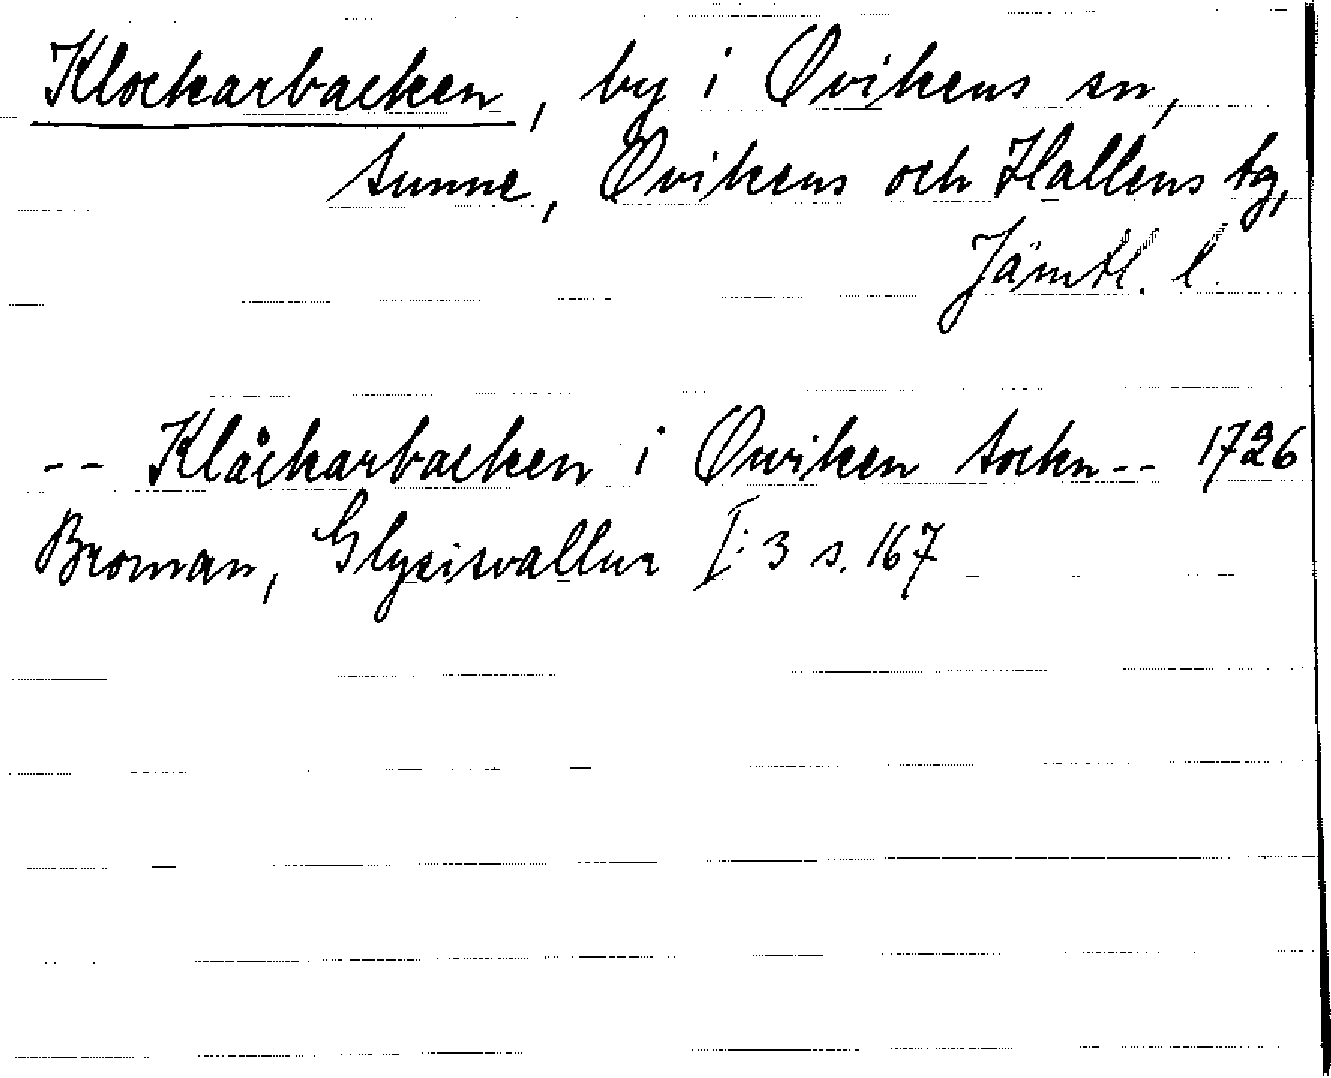 Klockarbacken, by i Ovikens sn,
Sunne, Ovikens och Hallens tg,
Jämtl. l.
-- Klåckarbacken i Owiken Sockn -- 1726
Broman, Glysisvallur I:3 s. 167